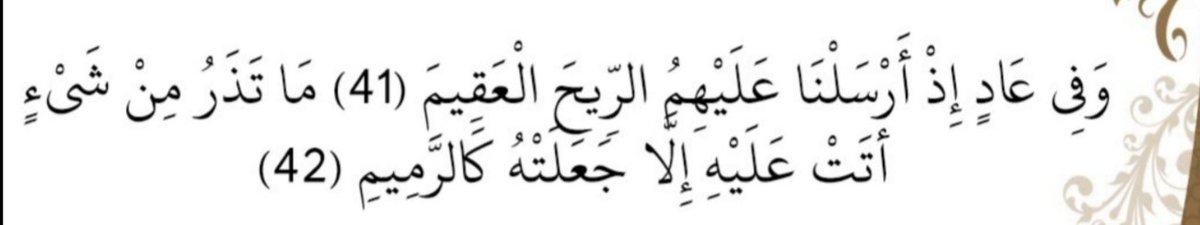 وَفِى عَادٍ إِذْ أَرْسَلْنَا عَلَيْهِمُ الرِّيحَ الْعَقِيمَ (41) مَا تَذَرُ مِنْ شَىْءٍ
أَتَتْ عَلَيْهِ إِلَّا جَعَلَتْهُ كَالرَّمِيمِ (42)